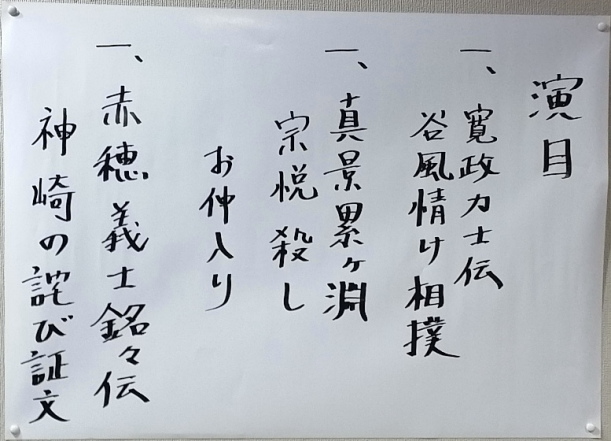 演目
一、寛政力士伝
谷風情け相撲
一、真景累ヶ淵
宗悦殺し
お仲入り
一、赤穂義士銘々伝
神崎の詫び証文